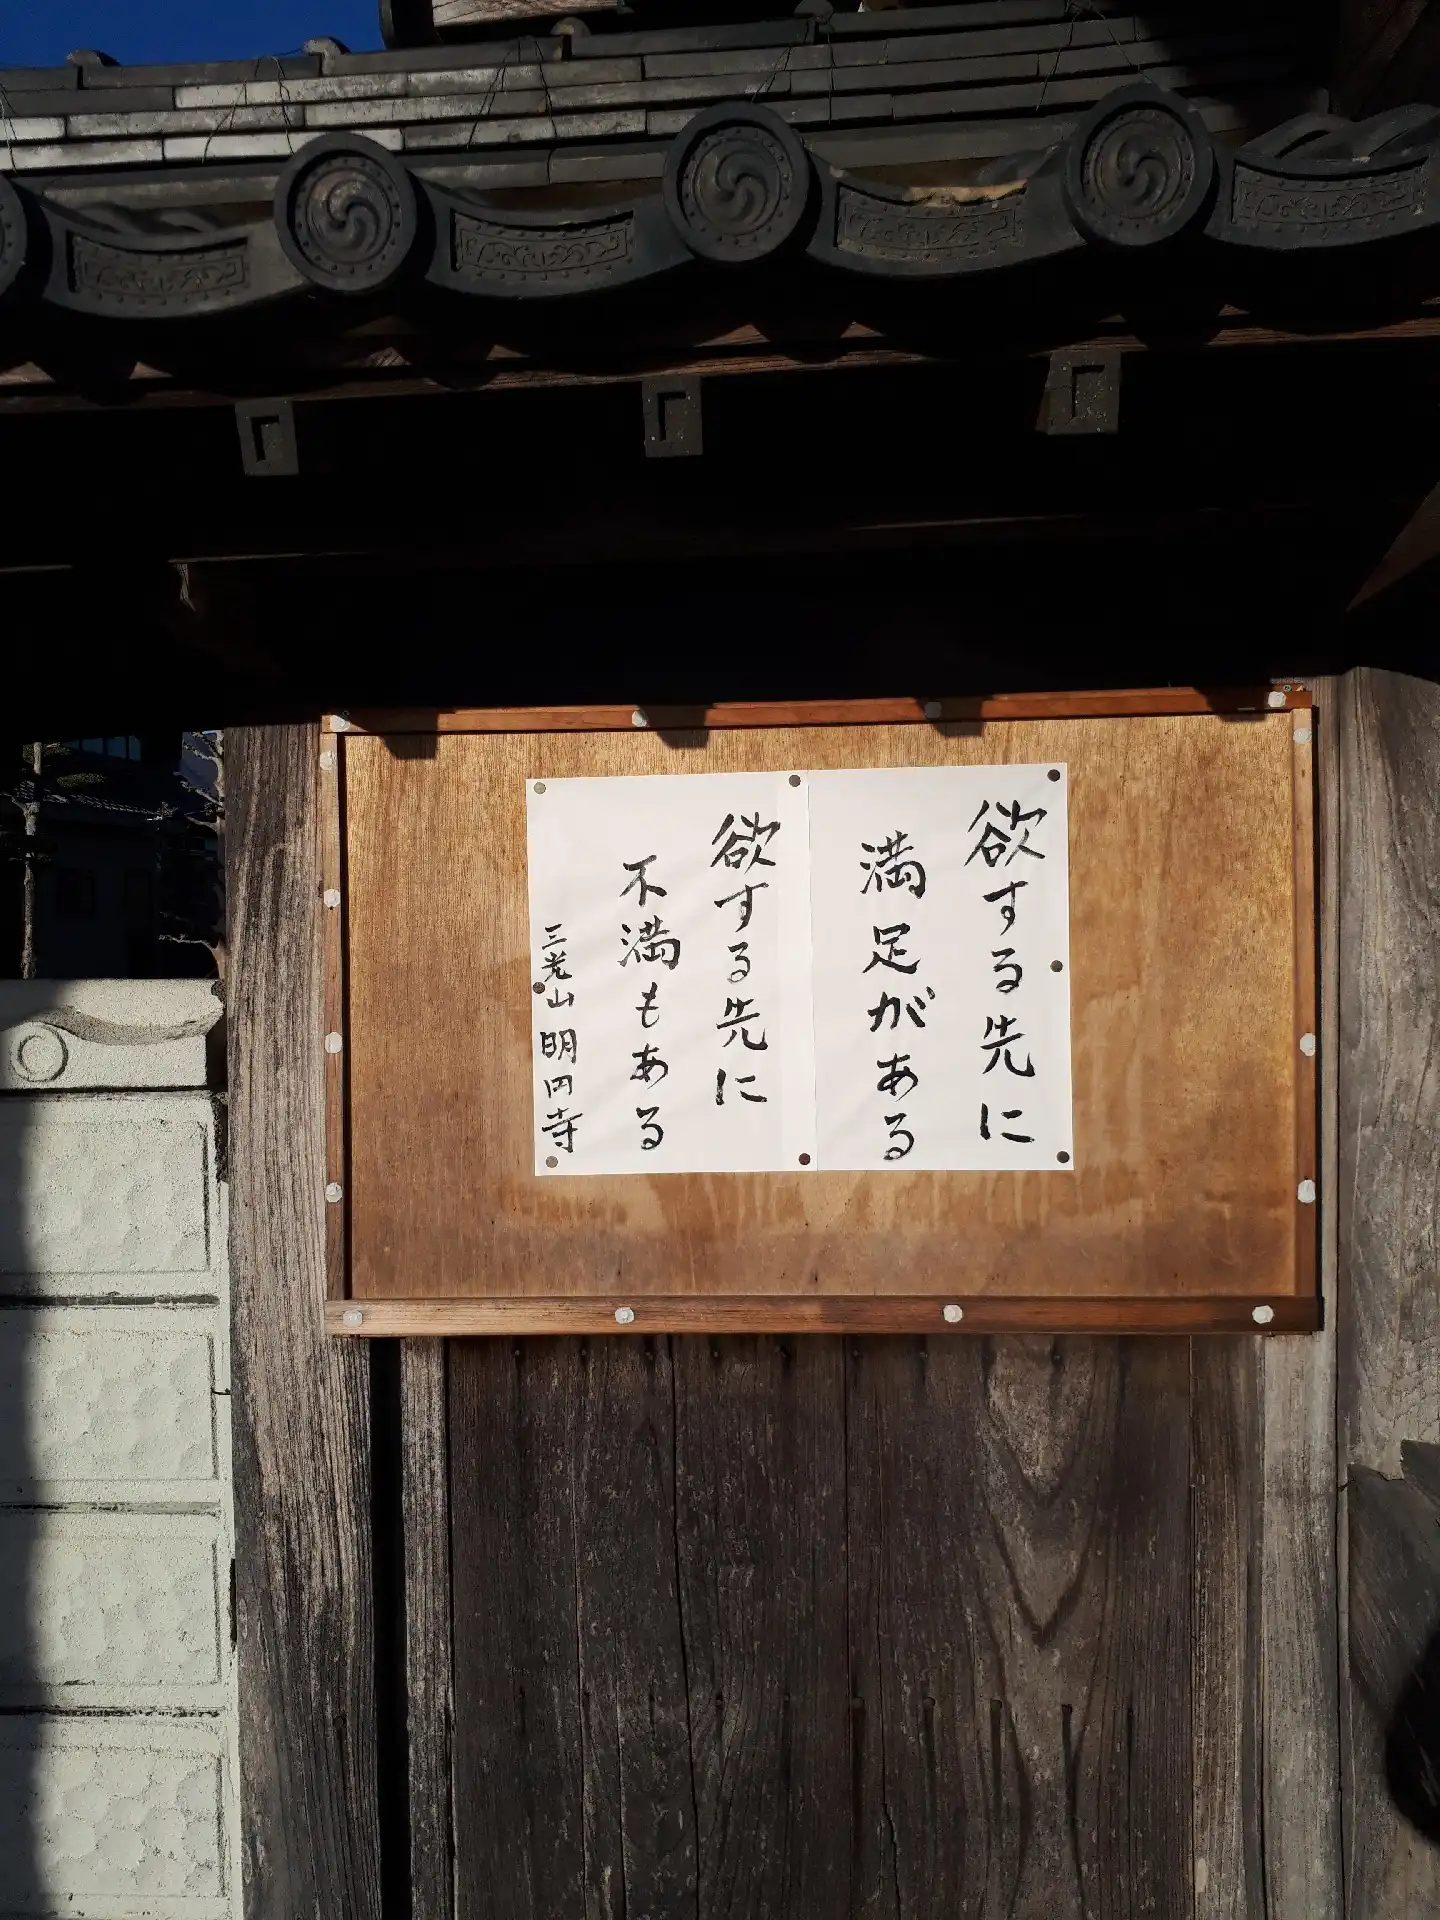 欲する先に
満足がある
欲する先に
不満もある
三光山 明円寺